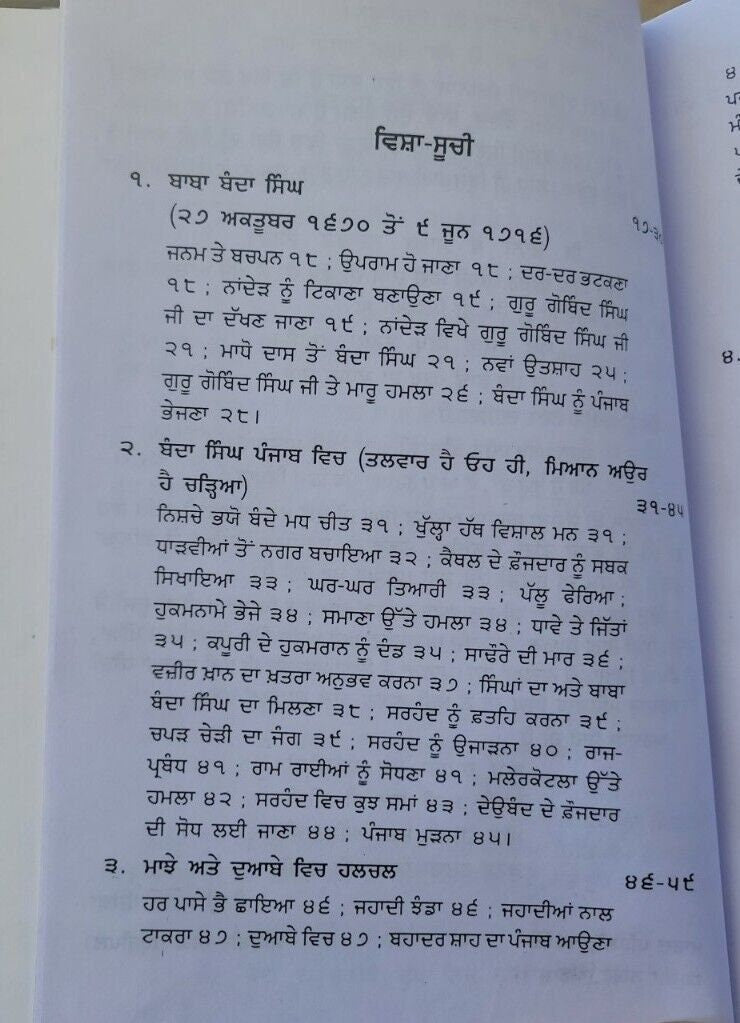 ਵਿਸ਼ਾ-ਸੂਚੀ
੧. ਬਾਬਾ ਬੰਦਾ ਸਿੰਘ
(੨੭ ਅਕਤੂਬਰ ੧੬੭੦ ਤੋਂ ੯ ਜੂਨ ੧੭੧੬) ੧੭-੩੦
ਜਨਮ ਤੇ ਬਚਪਨ ੧੮ ; ਉਪਰਾਮ ਹੋ ਜਾਣਾ ੧੮ ; ਦਰ-ਦਰ ਭਟਕਣਾ
੧੮ ; ਨਾਂਦੇੜ ਨੂੰ ਟਿਕਾਣਾ ਬਣਾਉਣਾ ੧੯ ; ਗੁਰੂ ਗੋਬਿੰਦ ਸਿੰਘ
ਜੀ ਦਾ ਦੱਖਣ ਜਾਣਾ ੧੯ ; ਨਾਂਦੇੜ ਵਿਖੇ ਗੁਰੂ ਗੋਬਿੰਦ ਸਿੰਘ ਜੀ
੨੧ ; ਮਾਧੋ ਦਾਸ ਤੋਂ ਬੰਦਾ ਸਿੰਘ ੨੧ ; ਨਵਾਂ ਉਤਸ਼ਾਹ ੨੫ ;
ਗੁਰੂ ਗੋਬਿੰਦ ਸਿੰਘ ਜੀ ਤੇ ਮਾਰੂ ਹਮਲਾ ੨੬ ; ਬੰਦਾ ਸਿੰਘ ਨੂੰ ਪੰਜਾਬ
ਭੇਜਣਾ ੨੮।
੨. ਬੰਦਾ ਸਿੰਘ ਪੰਜਾਬ ਵਿਚ (ਤਲਵਾਰ ਹੈ ਓਹ ਹੀ, ਮਿਆਨ ਅਉਰ
ਹੈ ਚੜ੍ਹਿਆ) ੩੧-੪੫
ਨਿਸ਼ਚੇ ਭਯੋ ਬੰਦੇ ਮਧ ਚੀਤ ੩੧ ; ਖੁੱਲ੍ਹਾ ਹੱਥ ਵਿਸ਼ਾਲ ਮਨ ੩੧ ;
ਧਾੜਵੀਆਂ ਤੋਂ ਨਗਰ ਬਚਾਇਆ ੩੨ ; ਕੈਥਲ ਦੇ ਫ਼ੌਜਦਾਰ ਨੂੰ ਸਬਕ
ਸਿਖਾਇਆ ੩੩ ; ਘਰ-ਘਰ ਤਿਆਰੀ ੩੩ ; ਪੱਲੂ ਫੇਰਿਆ ;
ਹੁਕਮਨਾਮੇ ਭੇਜੇ ੩੪ ; ਸਮਾਣਾ ਉੱਤੇ ਹਮਲਾ ੩੪ ; ਧਾਵੇ ਤੇ ਜਿੱਤਾਂ
੩੫ ; ਕਪੂਰੀ ਦੇ ਹੁਕਮਰਾਨ ਨੂੰ ਦੰਡ ੩੫ ; ਸਾਢੌਰੇ ਦੀ ਮਾਰ ੩੬ ;
ਵਜ਼ੀਰ ਖ਼ਾਨ ਦਾ ਖ਼ਤਰਾ ਅਨੁਭਵ ਕਰਨਾ ੩੭ ; ਸਿੰਘਾਂ ਦਾ ਅਤੇ ਬਾਬਾ
ਬੰਦਾ ਸਿੰਘ ਦਾ ਮਿਲਣਾ ੩੮ ; ਸਰਹੰਦ ਨੂੰ ਫ਼ਤਹਿ ਕਰਨਾ ੩੯ ;
ਚਪੜ ਚੇੜੀ ਦਾ ਜੰਗ ੩੯ ; ਸਰਹੰਦ ਨੂੰ ਉਜਾੜਨਾ ੪੦ ; ਰਾਜ-
ਪ੍ਰਬੰਧ ੪੧ ; ਰਾਮ ਰਾਈਆਂ ਨੂੰ ਸੋਧਣਾ ੪੧ ; ਮਲੇਰਕੋਟਲਾ ਉੱਤੇ
ਹਮਲਾ ੪੨ ; ਸਰਹੰਦ ਵਿਚ ਕੁਝ ਸਮਾਂ ੪੩ ; ਦੇਉਬੰਦ ਦੇ ਫ਼ੌਜਦਾਰ
ਦੀ ਸੋਧ ਲਈ ਜਾਣਾ ੪੪ ; ਪੰਜਾਬ ਮੁੜਨਾ ੪੫।
੩. ਮਾਝੇ ਅਤੇ ਦੁਆਬੇ ਵਿਚ ਹਲਚਲ ੪੬-੫੯
ਹਰ ਪਾਸੇ ਭੈ ਛਾਇਆ ੪੬ ; ਜਹਾਦੀ ਝੰਡਾ ੪੬ ; ਜਹਾਦੀਆਂ ਨਾਲ
ਟਾਕਰਾ ੪੭ ; ਦੁਆਬੇ ਵਿਚ ੪੭ ; ਬਹਾਦਰ ਸ਼ਾਹ ਦਾ ਪੰਜਾਬ ਆਉਣਾ